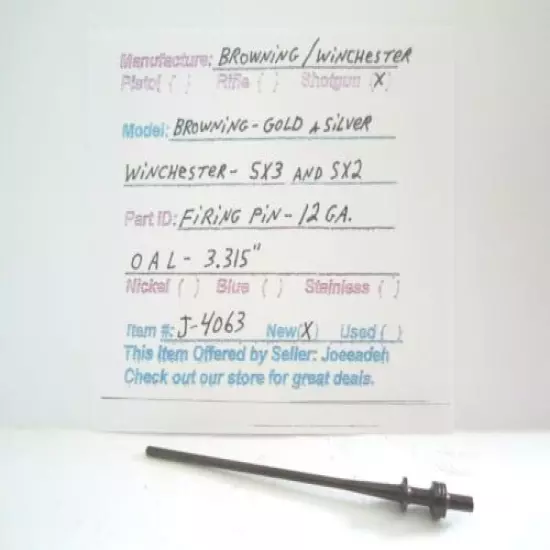 Manufacture: BROWNING / WINCHESTER
Pistol ( ) Rifle ( ) Shotgun (X)
Model: BROWNING - GOLD & SILVER
WINCHESTER - SX3 AND SX2
Part ID: FIRING PIN - 12 GA.
OAL - 3.315"
Nickel ( ) Blue ( ) Stainless ( )
Item #: J-4063 New(X) Used ( )
This Item Offered by Seller: Joeeadeh
Check out our store for great deals.